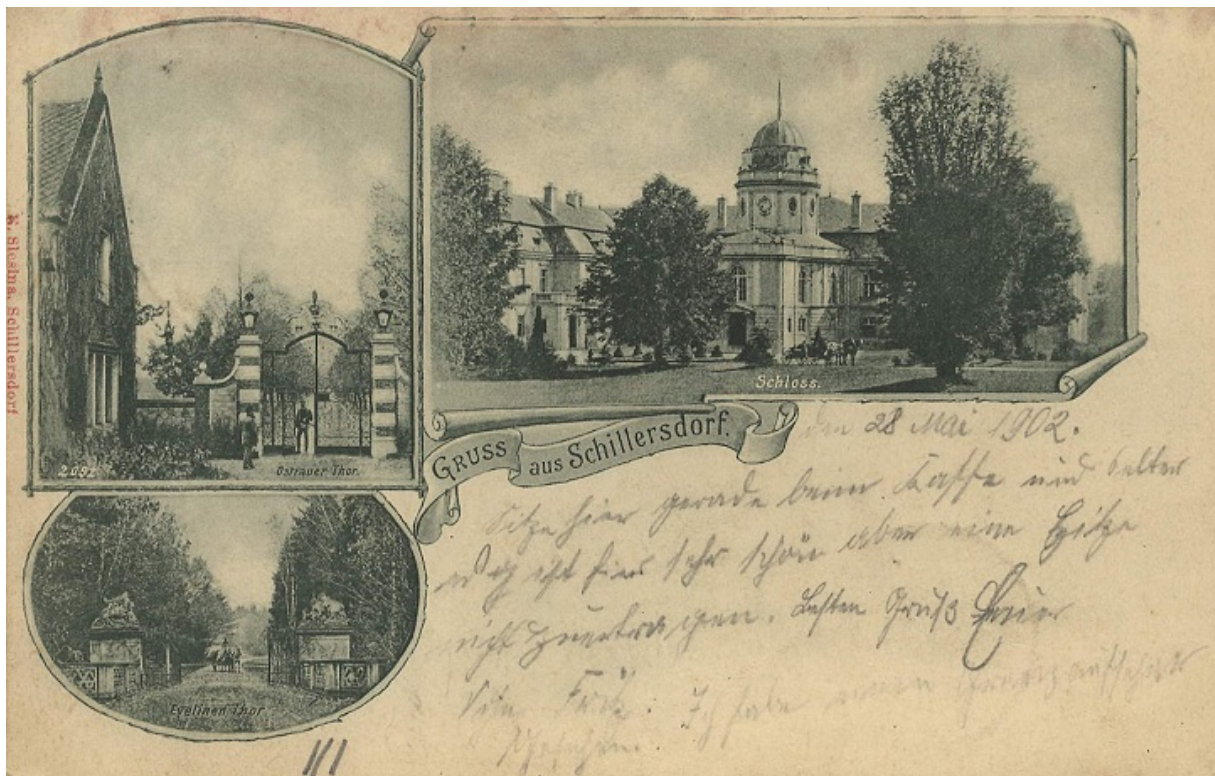 K. Slesina, Schillersdorf
Ostrauer Thor.
Schloss.
GRUSS aus Schillersdorf.
Evelinen Thor
den 28 Mai 1902.
Sitze hier gerade beim Kaffe und Selter
ist hier sehr schön aber eine Hitze
nicht zuertragen. Besten Gruß
Ich habe einen